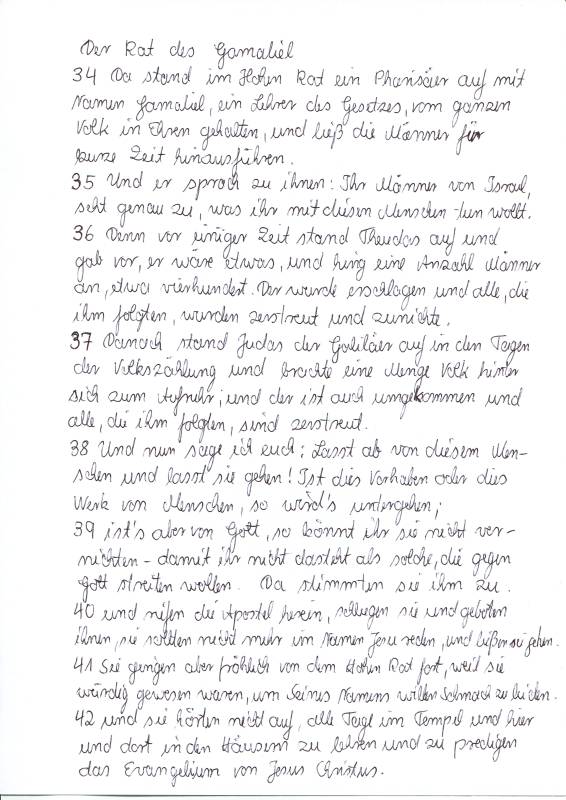 Der Rat des Gamaliel
34 Da stand im Hohen Rat ein Pharisäer auf mit
Namen Gamaliel, ein Lehrer des Gesetzes, vom ganzen
Volk in Ehren gehalten, und ließ die Männer für
kurze Zeit hinausführen.
35 Und er sprach zu ihnen: Ihr Männer von Israel,
seht genau zu, was ihr mit diesen Menschen tun wollt.
36 Denn vor einiger Zeit stand Theudas auf und
gab vor, er wäre etwas, und hing eine Anzahl Männer
an, etwa vierhundert. Der wurde erschlagen und alle, die
ihm folgten, wurden zerstreut und zunichte.
37 Danach stand Judas der Galiläer auf in den Tagen
der Volkszählung und brachte eine Menge Volk hinter
sich zum Aufruhr; und der ist auch umgekommen und
alle, die ihm folgten, sind zerstreut.
38 Und nun sage ich euch: Lasst ab von diesem Men-
schen und lasst sie gehen! Ist dies Vorhaben oder dies
Werk von Menschen, so wird's untergehen;
39 ist's aber von Gott, so könnt ihr sie nicht ver-
nichten - damit ihr nicht dasteht als solche, die gegen
Gott streiten wollen. Da stimmten sie ihm zu.
40 und riefen die Apostel herein, schlugen sie und geboten
ihnen, sie sollten nicht mehr im Namen Jesu reden, und ließen sie gehen.
41 Sie gingen aber fröhlich von dem Hohen Rat fort, weil sie
würdig gewesen waren, um Seines Namens willen Schmach zu leiden.
42 und sie hörten nicht auf, alle Tage im Tempel und hier
und dort in den Häusern zu lehren und zu predigen
das Evangelium von Jesus Christus.